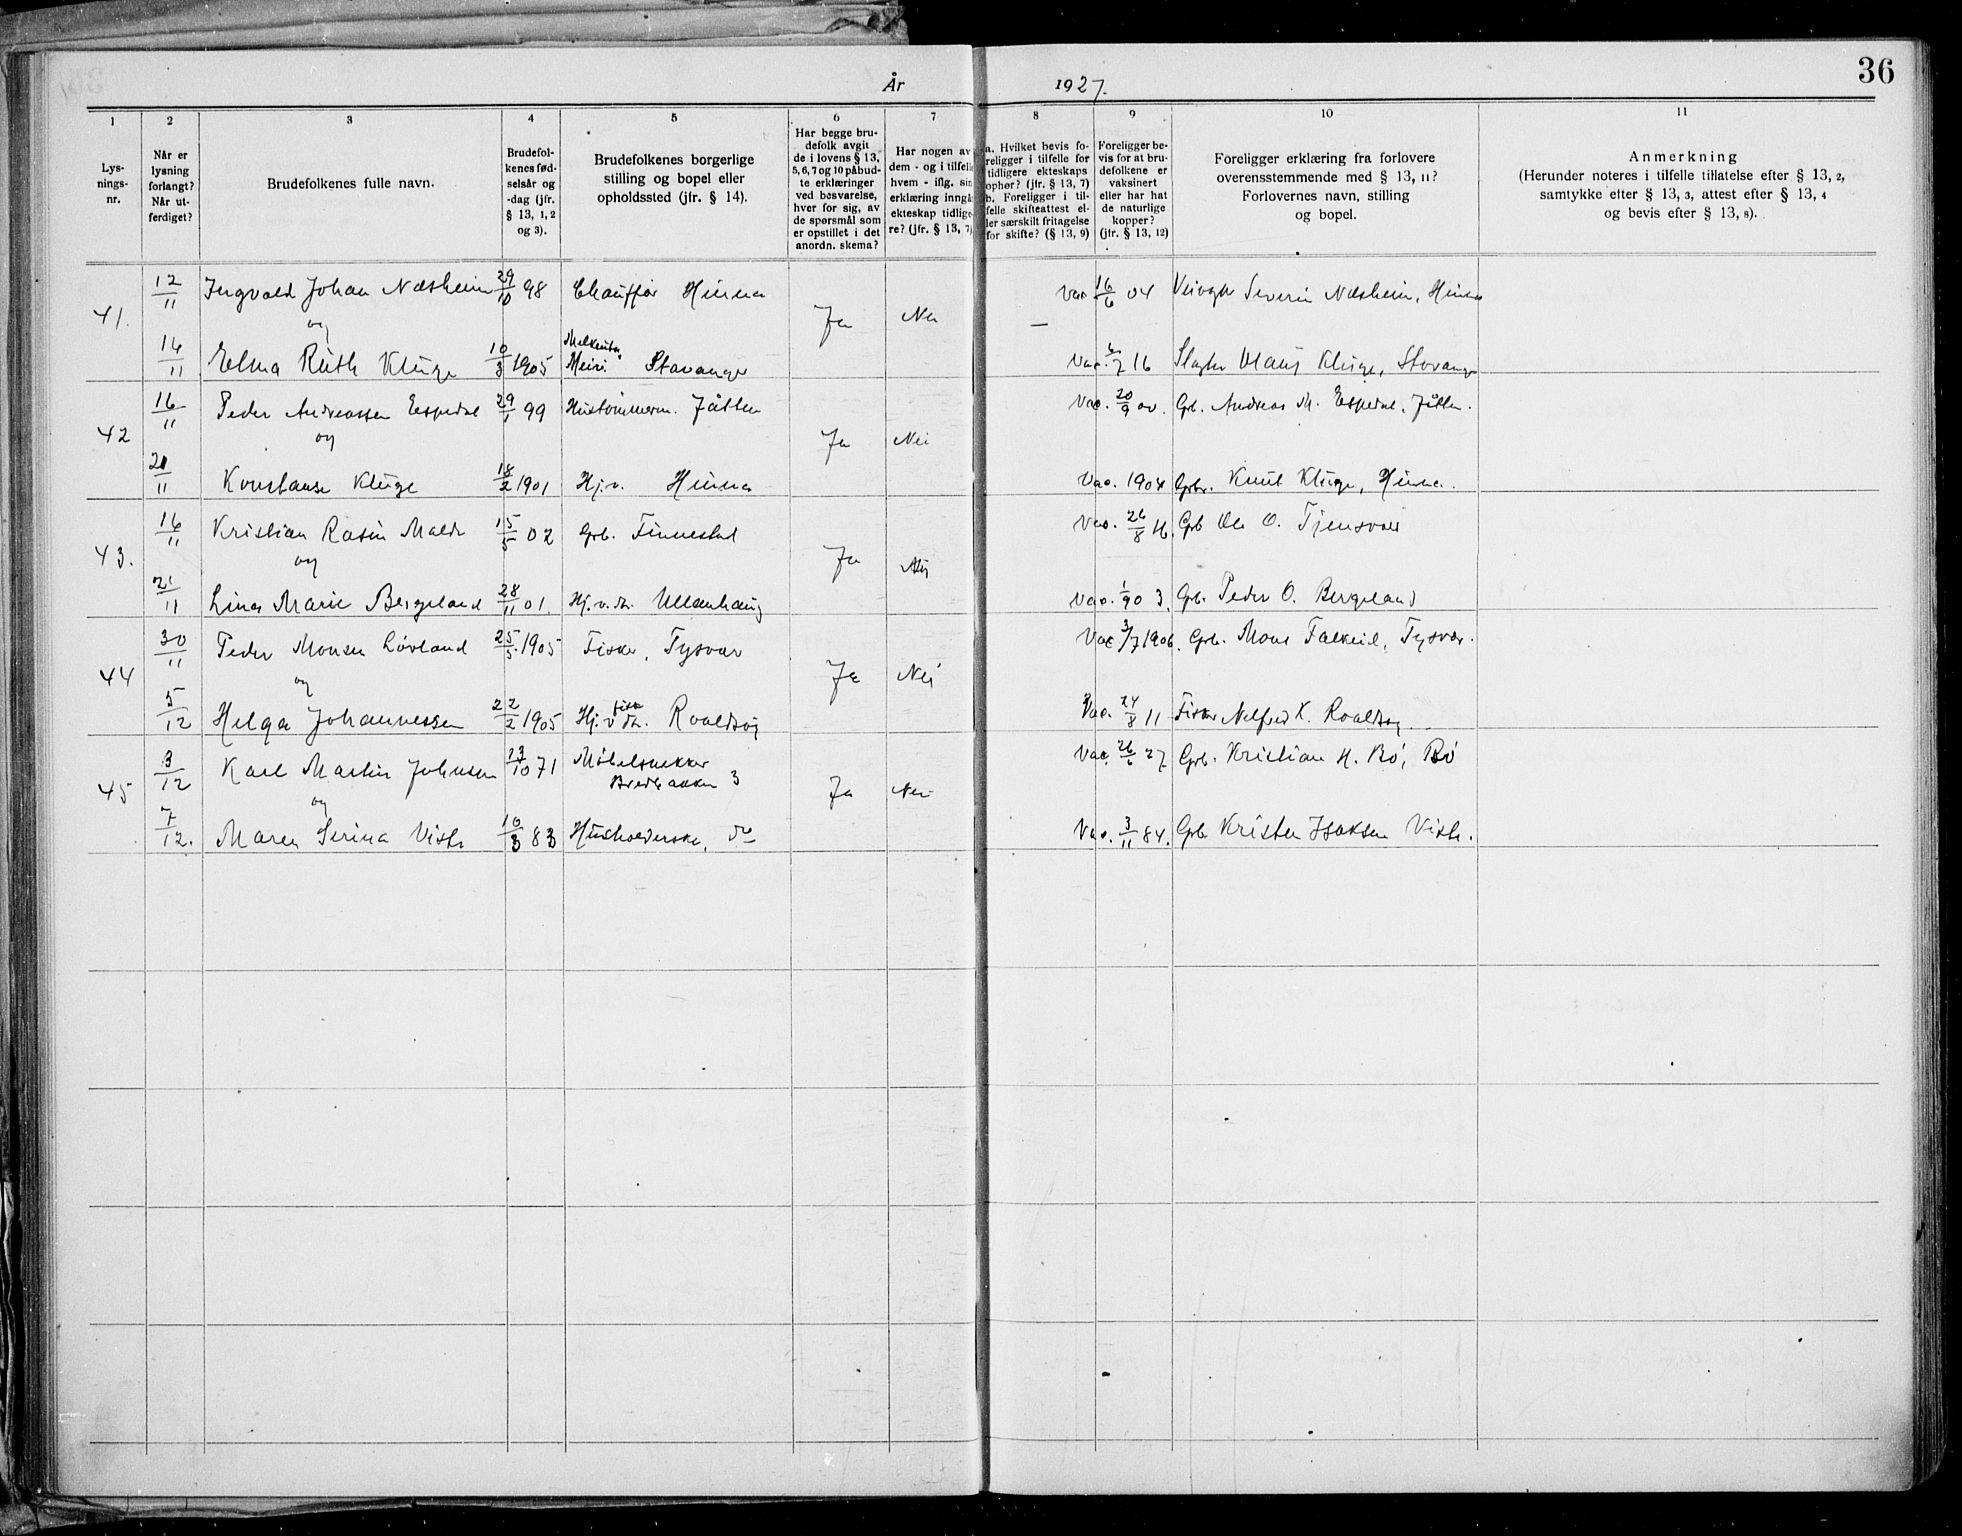 36
År 1927.
1 2 3 4 5 6 7 8 9 10 11
Lys-
nings-
nr.
Når er
lysning
forlangt?
Når ut-
ferdiget?
Brudefolkenes fulle navn.
Brudefol-
kenes fød-
selsår og
-dag (jfr.
§ 13, 1, 2
og 3).
Brudefolkenes borgerlige
stilling og bopel eller
opholdssted (jfr. § 14).
Har begge bru-
defolk avgit
de i lovens § 13,
5, 6, 7 og 10 påbud-
te erklæringer
ved besvarelse,
hver for sig, av
de spørsmål som
er opstillet i det
anordn. skema?
Har nogen av
dem - og i tilfelle
hvem - iflg. sin
erklæring inngå
ekteskap tidlige-
re? (jfr. § 13, 7)
a. Hvilket bevis fo-
religger i tilfelle for
tidligere ekteskaps
ophør? (jfr. § 13, 7)
b. Foreligger i til-
felle skifteattest el-
ler særskilt fritagelse
for skifte? (§ 13, 9)
Foreligger be-
vis for at bru-
defolkene er
vaksinert
eller har hat
de naturlige
kopper?
(jfr. § 13, 12)
Foreligger erklæring fra forlovere
overensstemmende med § 13, 11?
Forlovernes navn, stilling
og bopel.
Anmerkning
(Herunder noteres i tilfelle tillatelse efter § 13, 2,
samtykke efter § 13, 3, attest efter § 13, 4
og bevis efter § 13, 8).
12/11 Ingvald Johan Næsheim 29/10 98 Chauffør Hinna Vac. 16/6 04 Severin Næsheim, Hinna
41. og Ja Nei —
14/11 Elma Ruth Kluge 10/3 1905 Meieri Stavanger Vac. 6/7 16 Slagter Klaus Kluge, Stavanger
16/11 Peder Andreassen Espedal 29/1 99 Hustømmerm. Jåtten Vac. 20/9 00. Gb. Andreas M. Espedal, Jåtten.
42 og Ja Nei
21/11 Konstanse Kluge 18/2 1901 Hj.v. Hinna Vac. 1904 Grbr. Knut Kluge, Hinna.
16/11 Kristian Rasin Malde 15/5 02 Grb. Finnestad Vac. 26/8 Grb Ole O. Tjensvoll
43. og Ja Nei
21/11 Lina Marie Bergeland 28/11 01. Hj.v. dt. Ullenhaug Vac. 1/9 03. Grb. Peder O. Bergeland
30/11 Peder Monsen Løvland 25/5 1905 Fisker, Tysvær Vac 3/7 1906. Grb. Mons Falkeid, Tysvær.
44 og Ja Nei
5/12 Helga Johannessen 22/2 1905 Hj.v fisk dt. Roaldsøy Vac. 24/8 11 Fisker K. Roaldsøy
3/12 Karl Martin Johnsen 13/10 71 Møbelsnekker
Bredbakken 3 Vac. 26/6 27 Grb. Kristian H. Bø, Bø
45 og Ja Nei
7/12. Maren Serina Viste 10/3 83 Husholderske, do Vac. 3/11 84. Grb Kristen Isaksen Viste.